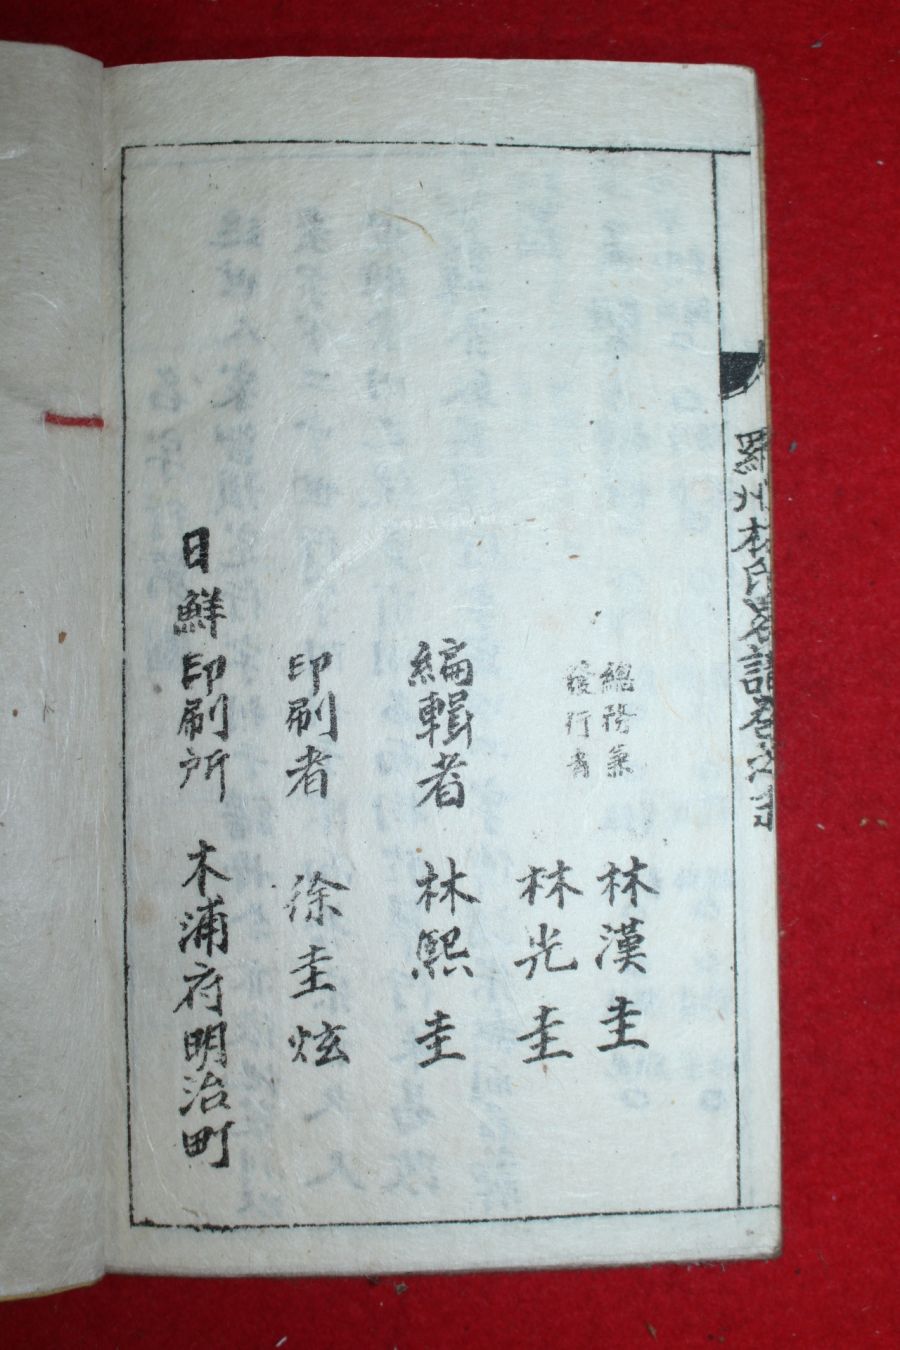 羅州林氏世譜卷之
總務兼
發行者
林漢圭
林光圭
編輯者 林熙圭
印刷者 徐圭炫
日鮮印刷所 木浦府明治町